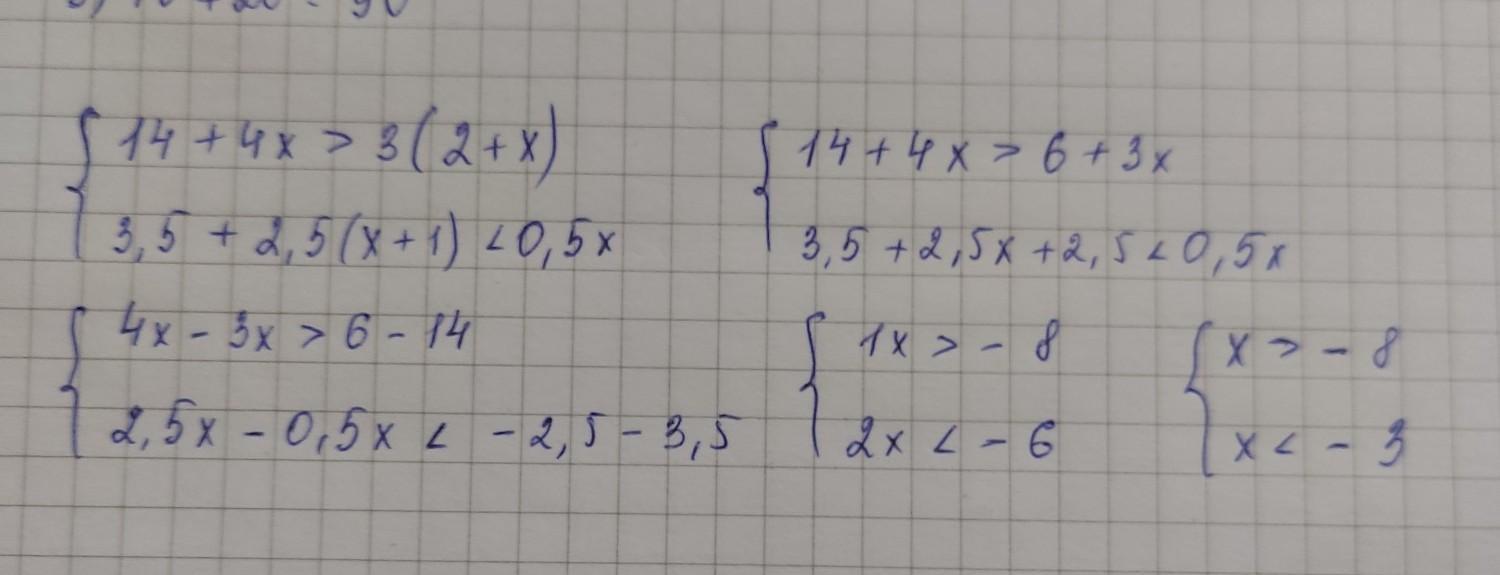 { 14 + 4x > 3(2+x)
3,5 + 2,5(x+1) < 0,5x
{ 14 + 4x > 6 + 3x
3,5 + 2,5x + 2,5 < 0,5x
{ 4x - 3x > 6 - 14
2,5x - 0,5x < - 2,5 - 3,5
{ 1x > - 8
2x < - 6
{ x > - 8
x < - 3